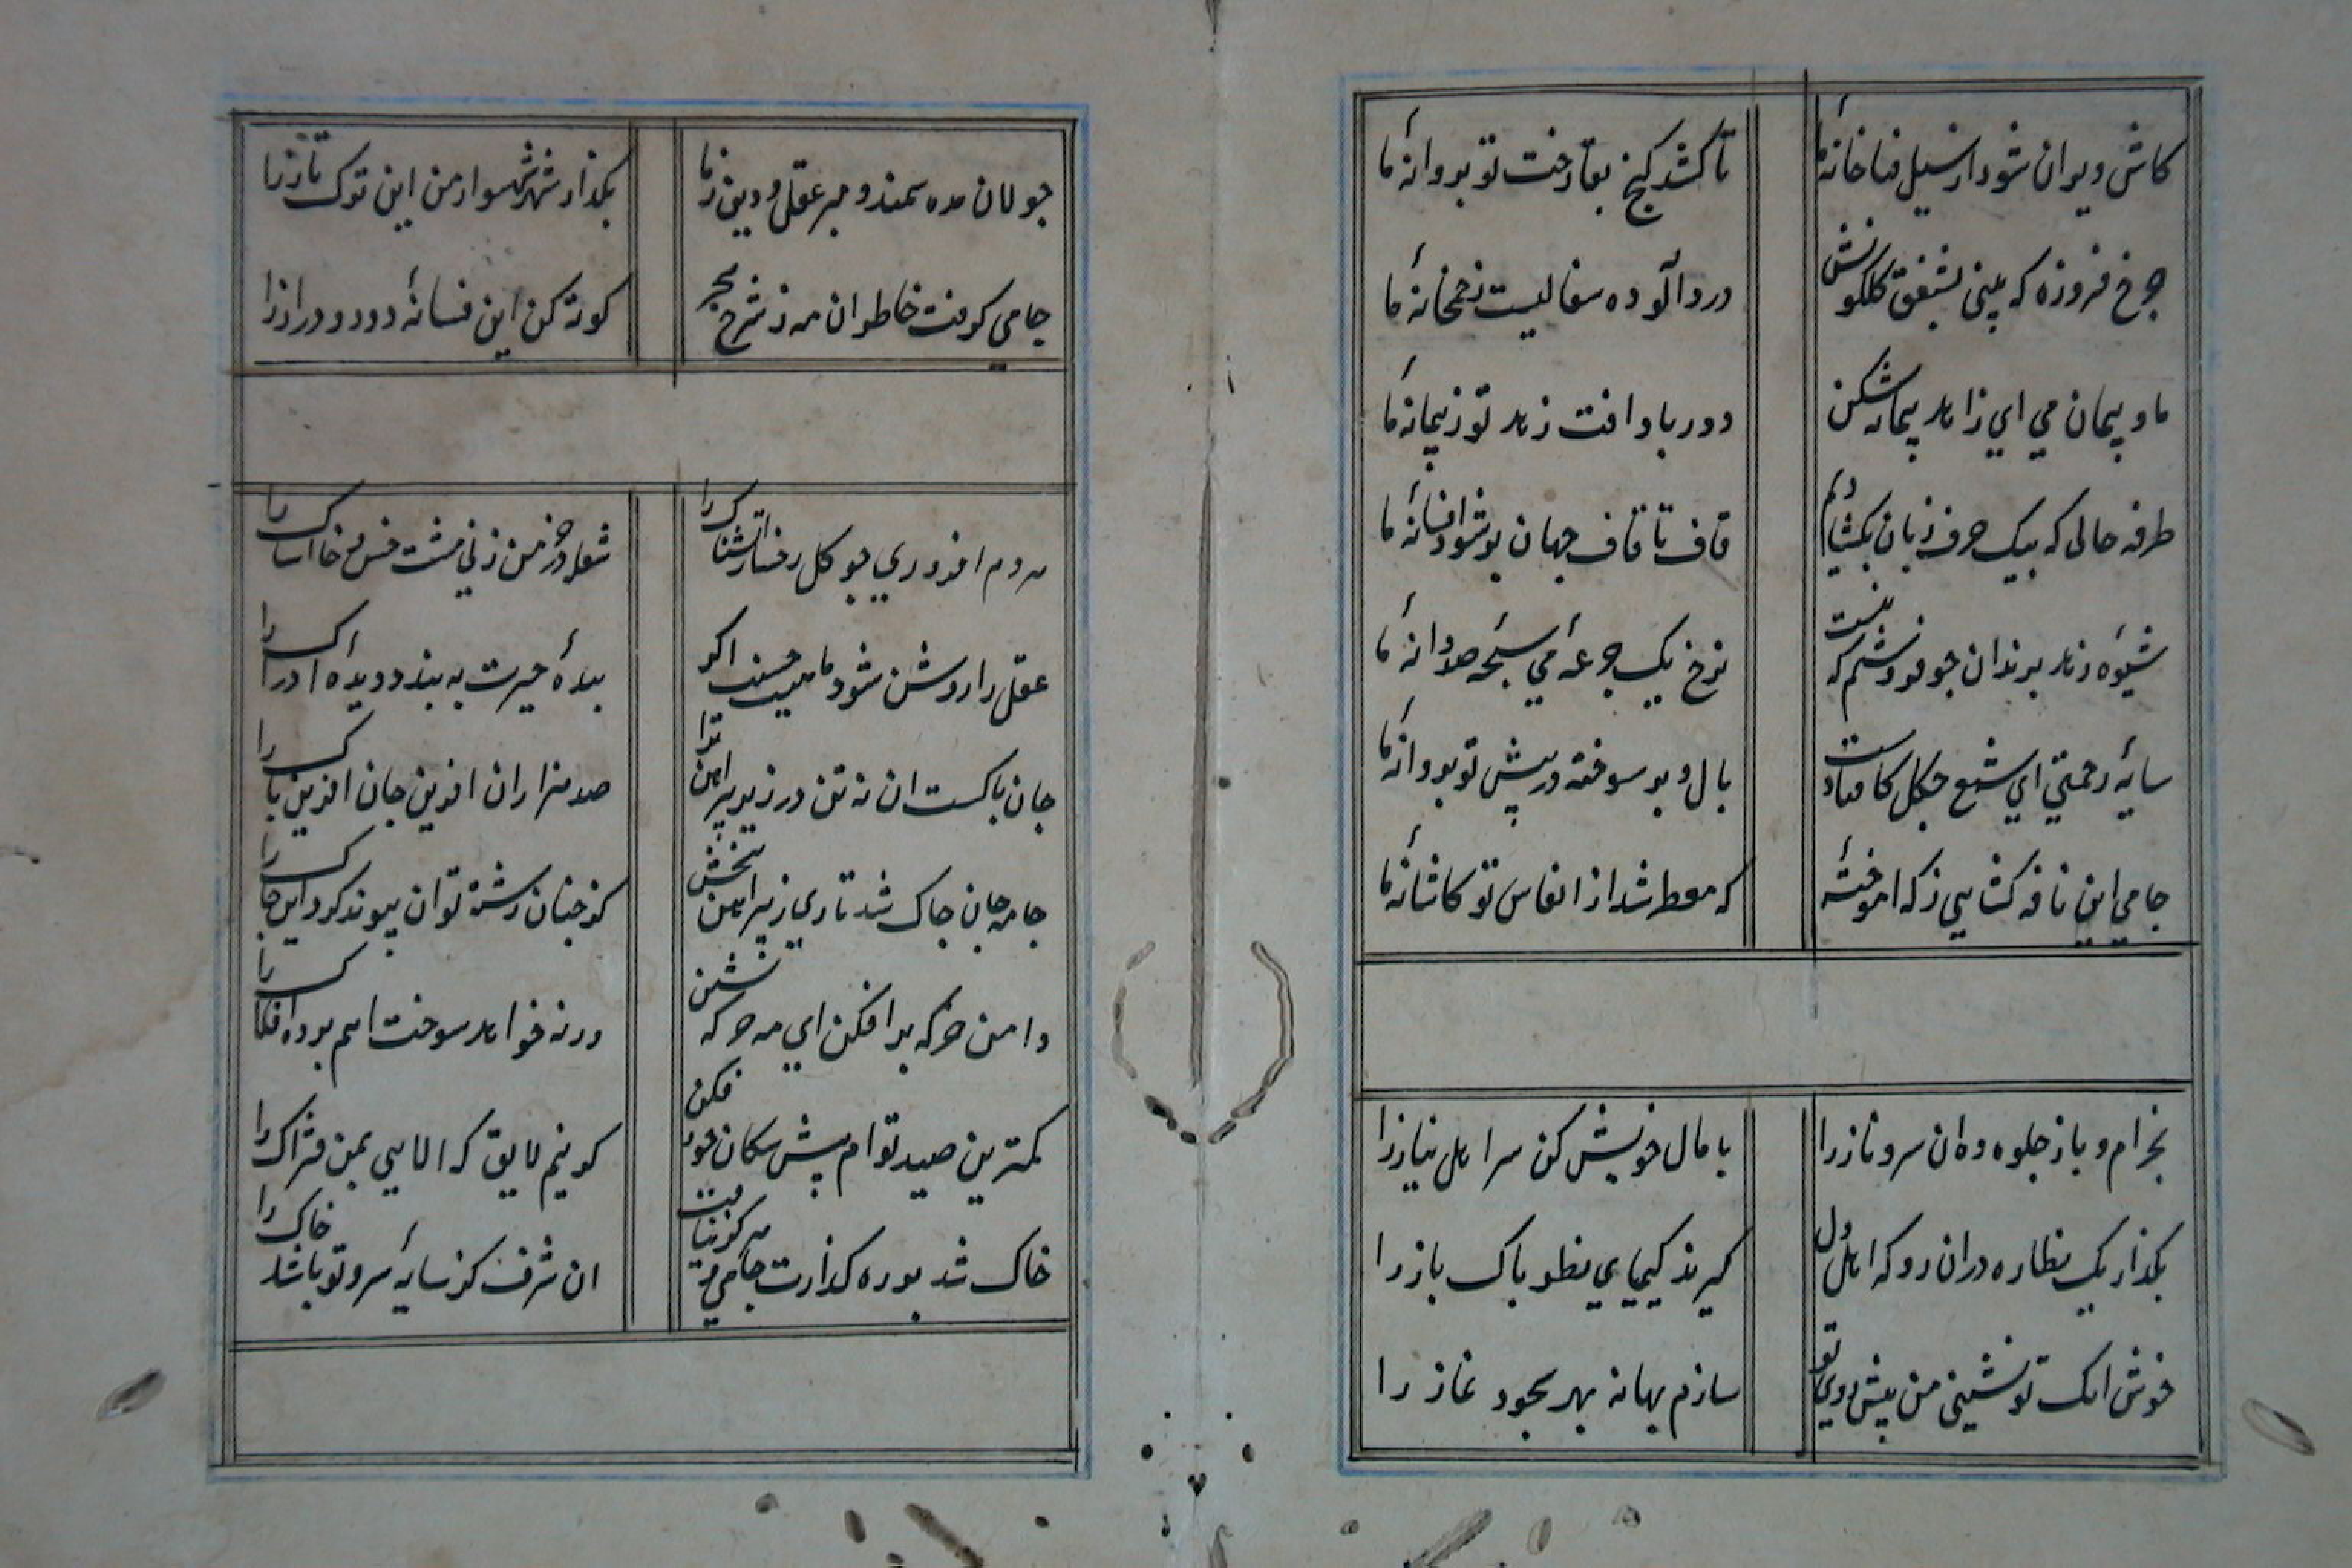 کاش ویران شود از سیل فنا خانهٔ ما
تا کشد کنج بقا رخت تو بروانهٔ ما
چرخ فروزه که بینی بشفق کلکونش
درد آلوده سفالیست ز خمخانهٔ ما
ما و پیمان می ای زاهد پیمانه شکن
دور باد آفت زهد تو ز پیمانهٔ ما
طرفه حالی که بیک حرف زبان نکشادیم
قاف تا قاف جهان بر شود افسانهٔ ما
شیوه زهد برندان جو فروشم که بنیست
نرخ یک جرعهٔ می سبحه صد دانهٔ ما
سایهٔ رحمتی ای شمع چکل کافتادست
بال و بر سوخته در پیش تو بروانهٔ ما
جامی این نافه کشایی ز که اموختهٔ
که معطر شد از انفاس تو کاشانهٔ ما
بخرام و باز جلوه ده ان سرو ناز را
بامال خویش کن سر اهل نیاز را
بکذار یک نظاره دران رو که اهل دل
کیرند کیمیای نظر باک باز را
خوش انک تو نشینی و من پیش روی تو
سازم بهانه بهر سجود نماز را
جولان مده سمند و مبر عقل و دین ز ما
بکذار شهسوار من این ترک تاز را
جامی کرفت خاطر ان مه ز شرح هجر
کوته کن این فسانهٔ دور و دراز را
هر دم افروزی چو کل رخسار آتشناک را
شعله در خرمن زنی مشت خس و خاشاک را
عقل را روشن شود ماهیت حسنت اکر
بردهٔ حیرت به بندد دیدهٔ ادراک را
جان باکست ان نه تن در زیر پیراهن ترا
صد هزاران افرین جان افرین باک را
جامه جان جاک شد تاری ز پیراهن ببخش
کز جنان رشته توان پیوند کرد این جاک را
دامن خرکه برافکن ای مه خرکه نشین
ورنه خواهد سوخت اهم برده افلاک را
کمترین صید توام پیش سکان خود فکن
کر نیم لایق که الایی بمن فتراک را
خاک شد بر ره کذارت جامی و هرکز نیافت
ان شرف کز سایهٔ سرو تو باشد خاک را